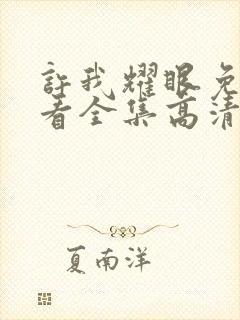 許我耀眼免
看全集高清
夏南洋